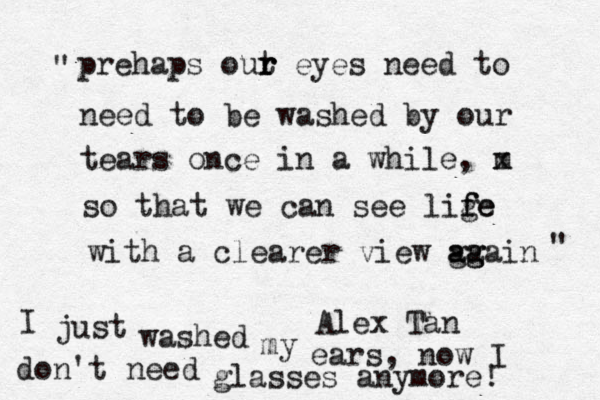 "prehaps our eyes need to
need to be washed by our
tears once in a while,
so that we can see life
with a clearer view again"
Alex Tan
I just washed my ears, now I
don't need glasses anymore!